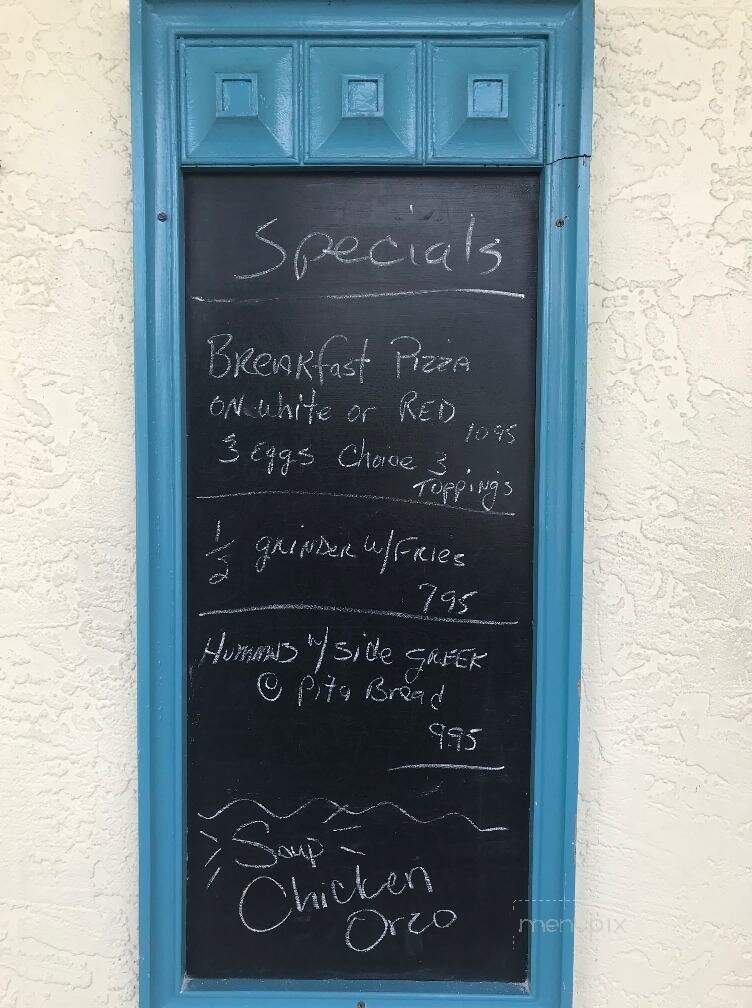 Specials
Breakfast Pizza
ON White or RED
1095
3 Eggs Choice 3
Toppings
1/2 grinder w/Fries
795
Hummus w/side GREEK
© Pita Bread
9.95
Soup
Chicken
Orzo
menupix